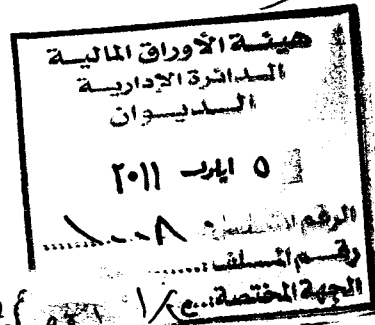 هيئة الأوراق المالية
الدائرة الإدارية
الديوان
٥ ايلول ٢٠١١
الرقم المتسلسل ١٠٠٨
رقم الملف
الجهة المختصة ع/١